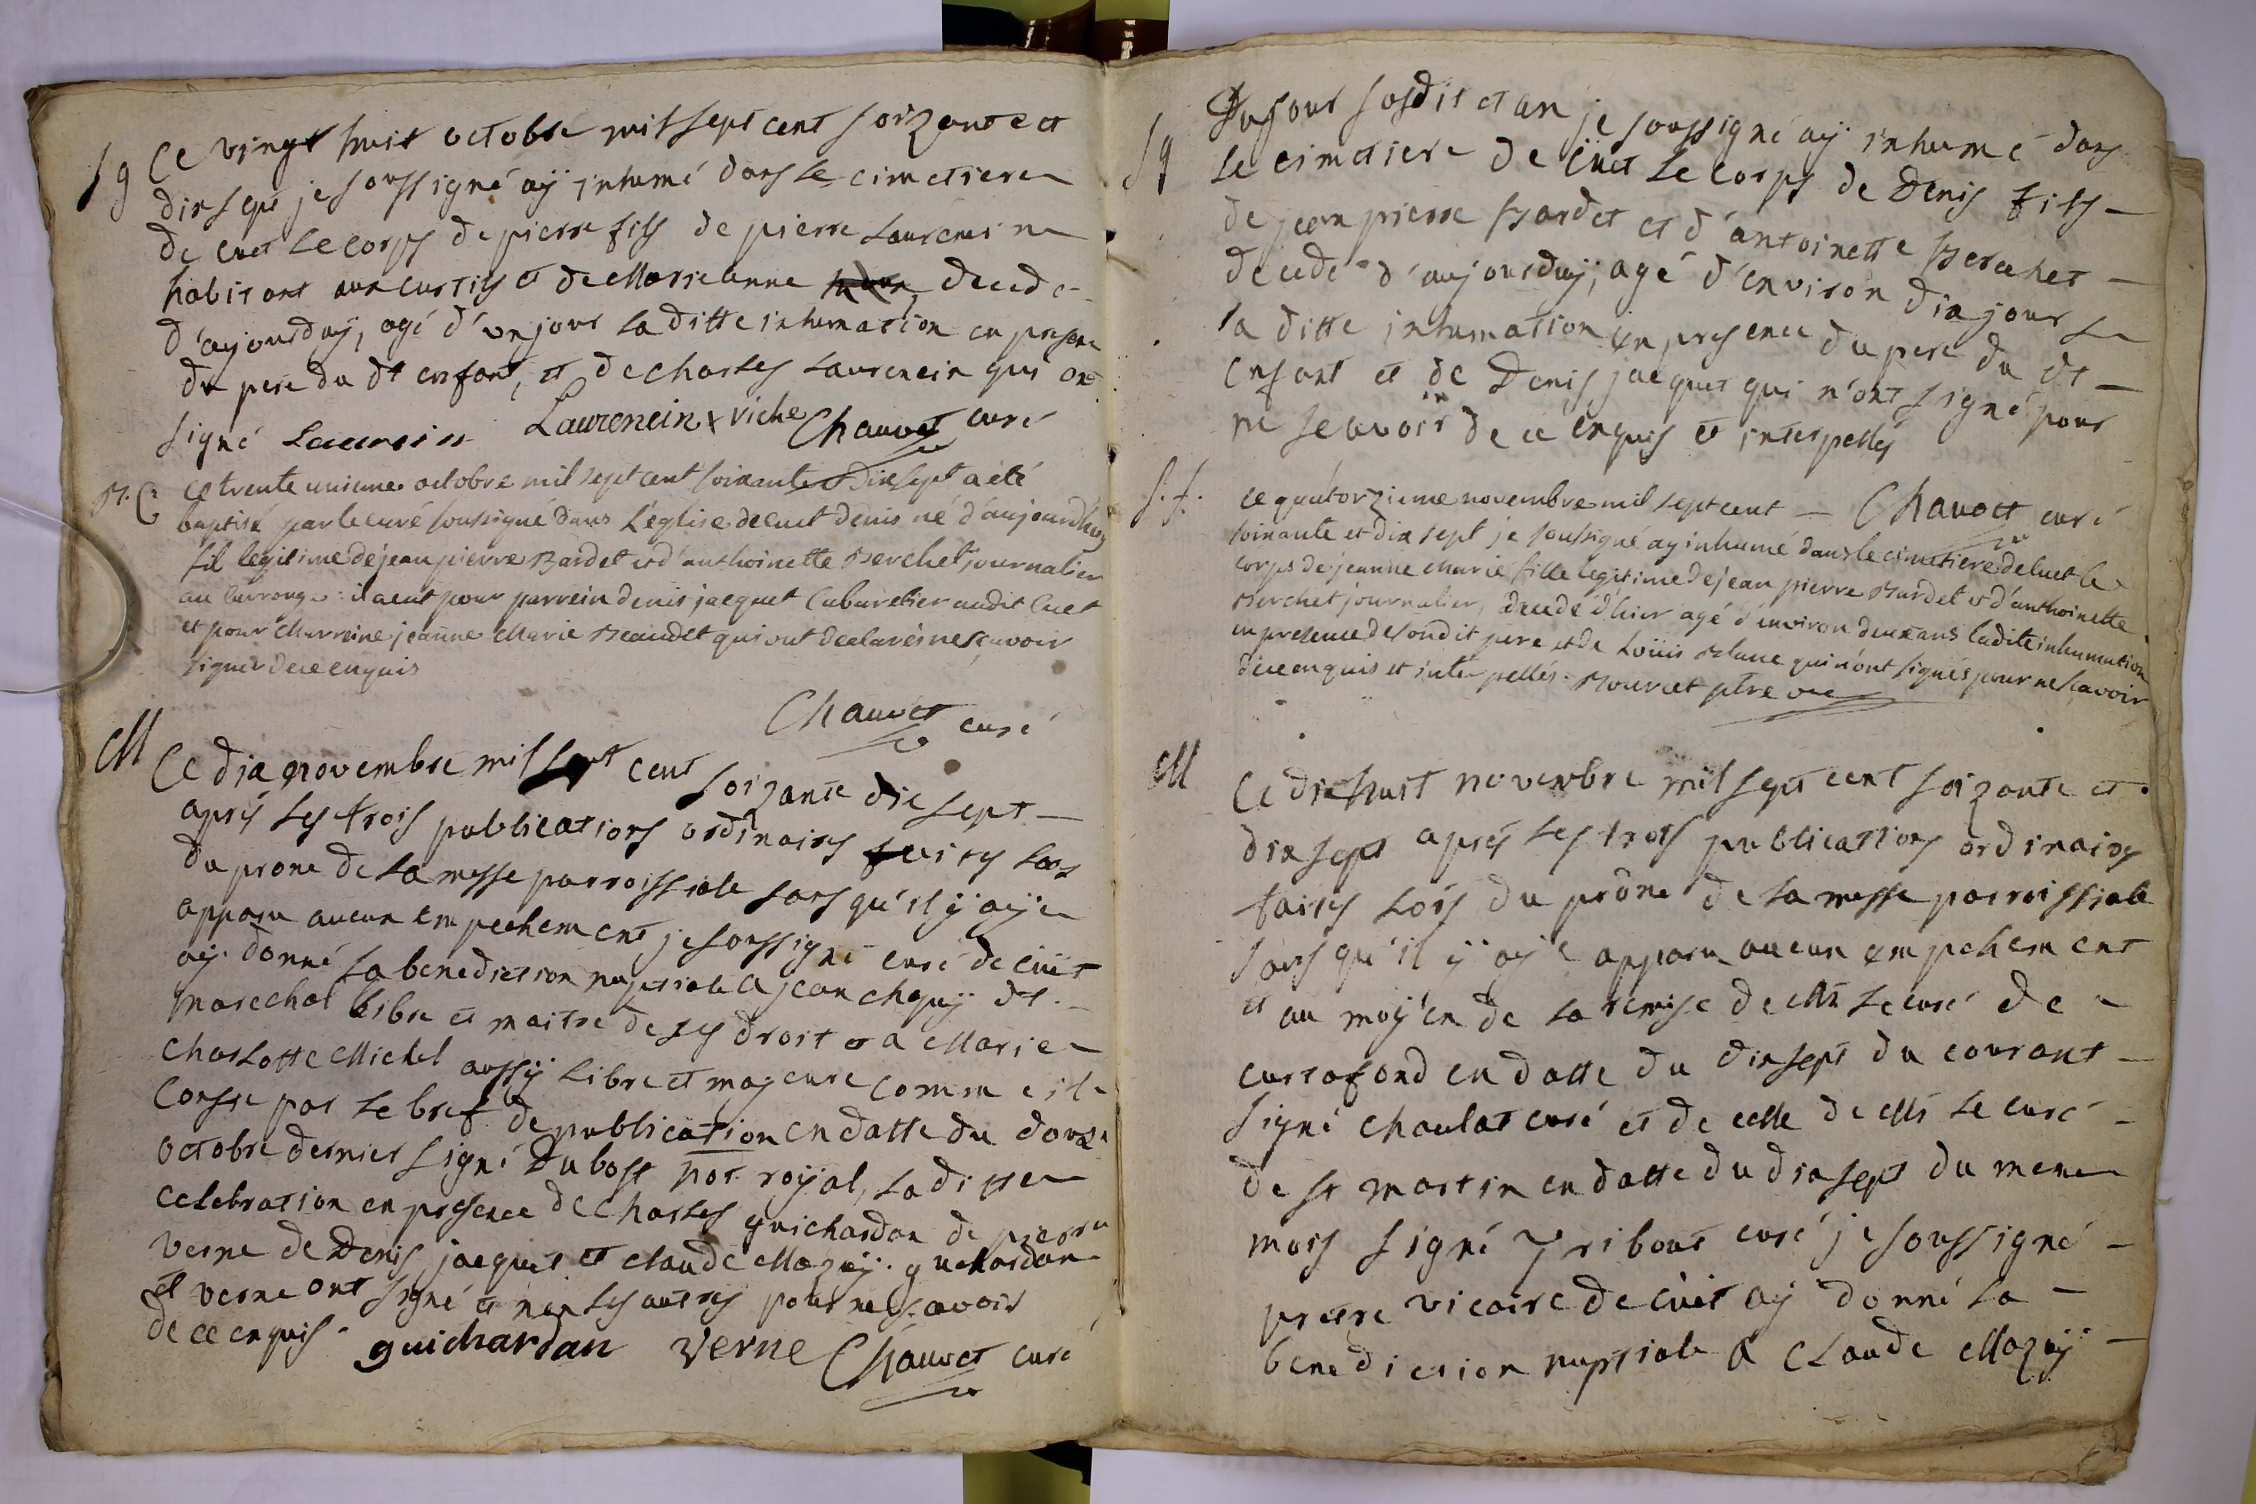 Sg Ce vingt huit octobre mil sept cent soizante et
dix sept je soussigné aÿ inhumé dans le cimetiere
de cuet le corps de pierre fils de pierre Laurencin
habitant aux curtils et de Marie anne decedé
d'aujourduÿ, agé d'un jour la ditte inhumation en presence
du pere du dt enfant, et de charles Laurencin qui ont
signé Laurencin Laurencin viche Chauvet curé
B. G. Ce trente unieme octobre mil sept cent soixante et dix sept a été
baptisé par le curé soussigné dans l'église de cuet denis né d'aujourdhuy
fil legitime de jean pierre Bardet et d'anthoinette Berchet journalier
au : il a eut pour parrein denis jacquet Cabaretier audit Cuet
et pour Marreine jeanne Marie Beaudet qui ont declarés ne sçavoir
signer de ce enquis
Chauvet curé
M Ce dix novembre mil sept cent soizante dix sept
aprés les trois publications ordinaires faites lors
du prone de la messe parroissiale sans qu'il ÿ aÿe
apparu aucun empechement je soussigné curé de cuët
aÿ donné la benediction nuptiale a jean chapuÿ dt
marechal libre et maitre de ses droit et a Marie
charlotte Michel aussÿ libre et majeure comme il
conste par le bref de publication en datte du douze
octobre dernier signé Dubost not. roÿal, la ditte
celebration en presence de Charles guichardan de pierre
verne de Denis jacquet et claude Mazuÿ. guichardan
et verne ont signé et non les autres pour ne sçavoir
de ce enquis guichardan Verne Chauvet curé
Sg Du jour susdit et an je soussigné aÿ inhumé dans
le cimetiere de Cuet le corps de Denis fils
de jean pierre Bardet et d'antoinette Berchet
decedé d'aujourduÿ, agé d'environ dix jours
la ditte inhumation en presence du pere du dt
enfant et de Denis jacquet qui n'ont signé pour
ne scavoir de ce enquis et interpellés
Chauvet curé
S. f. Ce quatorzieme novembre mil sept cent
soixante et dix sept je soussigné ay inhumé dans le cimetiere de cuet le
corps de jeanne Marie fille legitime de jean pierre Bardet et d'anthoinette
Berchet journalier, decedé d'hier agé d'environ deux ans ladite inhumation
en presence de sondit pere et de Loüis Blanc qui n'ont signés pour ne sçavoir
de ce enquis et interpellés. Bourcet ptre vic
M Ce dix huit novembre mil sept cent soizante et
dix sept aprés les trois publications ordinaires
faites lors du prône de la messe parroissiale
sans qu'il ÿ aÿe apparu aucun empechement
et au moÿen de la remise de Mr le curé de
curtafond en datte du dix sept du courant
signé chaulat curé et de celle de Mr le curé
de st martin en datte du dix sept du meme
mois signé Tribout curé je soussigné
pretre vicaire de cuët aÿ donné la
benediction nuptiale a claude Mazuÿ